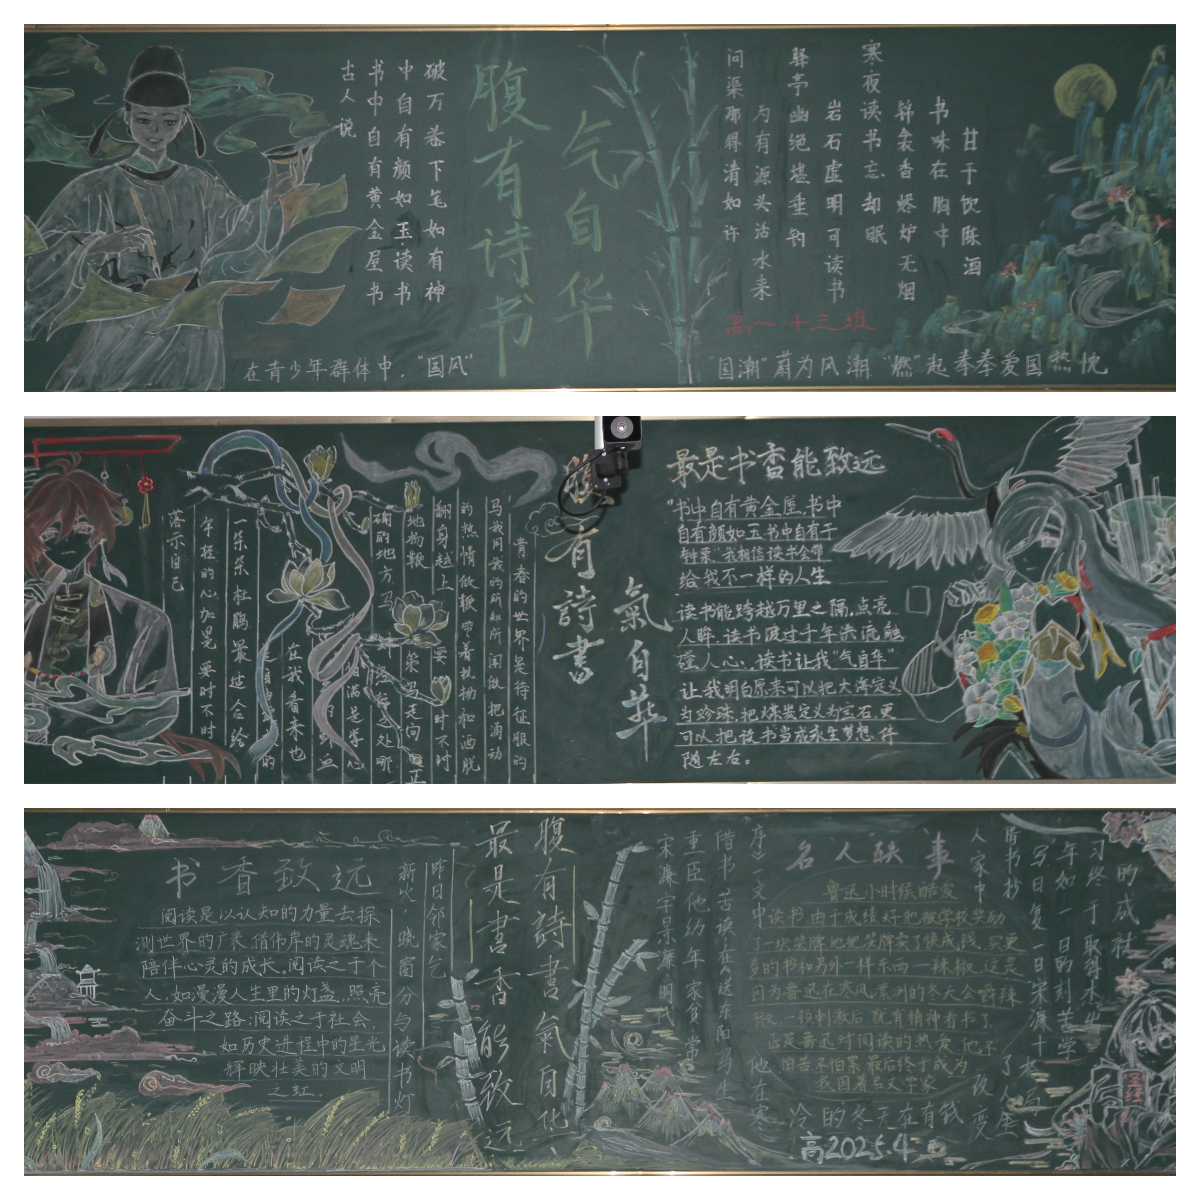 古人说
书中自有黄金屋书
中自有颜如玉读书
破万卷下笔如有神
腹有诗书
气自华
问渠那得清如许
为有源头活水来
驿亭幽绝堪垂钓
岩石虚明可读书
寒夜读书忘却眠
锦衾香烬炉无烟
书味在胸中
甘于饮陈酒
高一十三班
在青少年群体中，“国风”
“国潮”蔚为风潮“燃”起拳拳爱国热忱
青春的世界是待征服的
马我用我的所知所闻做把涌动
的热情做鞭带着执拗和洒脱
翻身越上
要时不时
地扬鞭
策马走向
一朵朵杜鹃最适合给
在我看来也
落示自己
腹有詩書
氣自華
最是书香能致远
“书中自有黄金屋，书中
自有颜如玉书中自有千
钟粟”我相信读书会带
给我不一样的人生
读书能跨越万里之隔，点亮
人眸，读书渡过千年洪流触
碰人心，读书让我“气自华”
让我明白原来可以把大海定义
为珍珠，把煤炭定义为宝石，更
可以把读书当成永生梦想，伴
随左右。
书香致远
阅读是以认知的力量去探
测世界的广袤，借伟岸的灵魂来
陪伴心灵的成长，阅读之于个
人，如漫漫人生里的灯盏，照亮
奋斗之路；阅读之于社会，
如历史进程中的星光
辉映壮美的文明
之虹.
昨日邻家乞
新火，晓窗分与读书灯
腹有詩書氣自华
最是書香能致远
名人轶事
鲁迅小时候酷爱
读书，由于成绩好他被学校奖励
了一块奖牌，他把奖牌卖了换成钱，买更
多的书和另外一样东西—辣椒，这是
因为鲁迅在寒风凛冽的冬天会嚼辣
椒
刺激后就有精神看书了
这是鲁迅对阅读的热爱，他不
怕苦不怕累最后终于成为
我国著名文学家
宋濂字景濂明代
重臣他幼年家贫常
借书苦读，在《送东阳马生
序》一文中
他在寒
冷的冬天在有钱
人家中
借书抄
写日复一日宋濂十
年如一日的刻苦学
习终于取得术业
的成
高2025.4